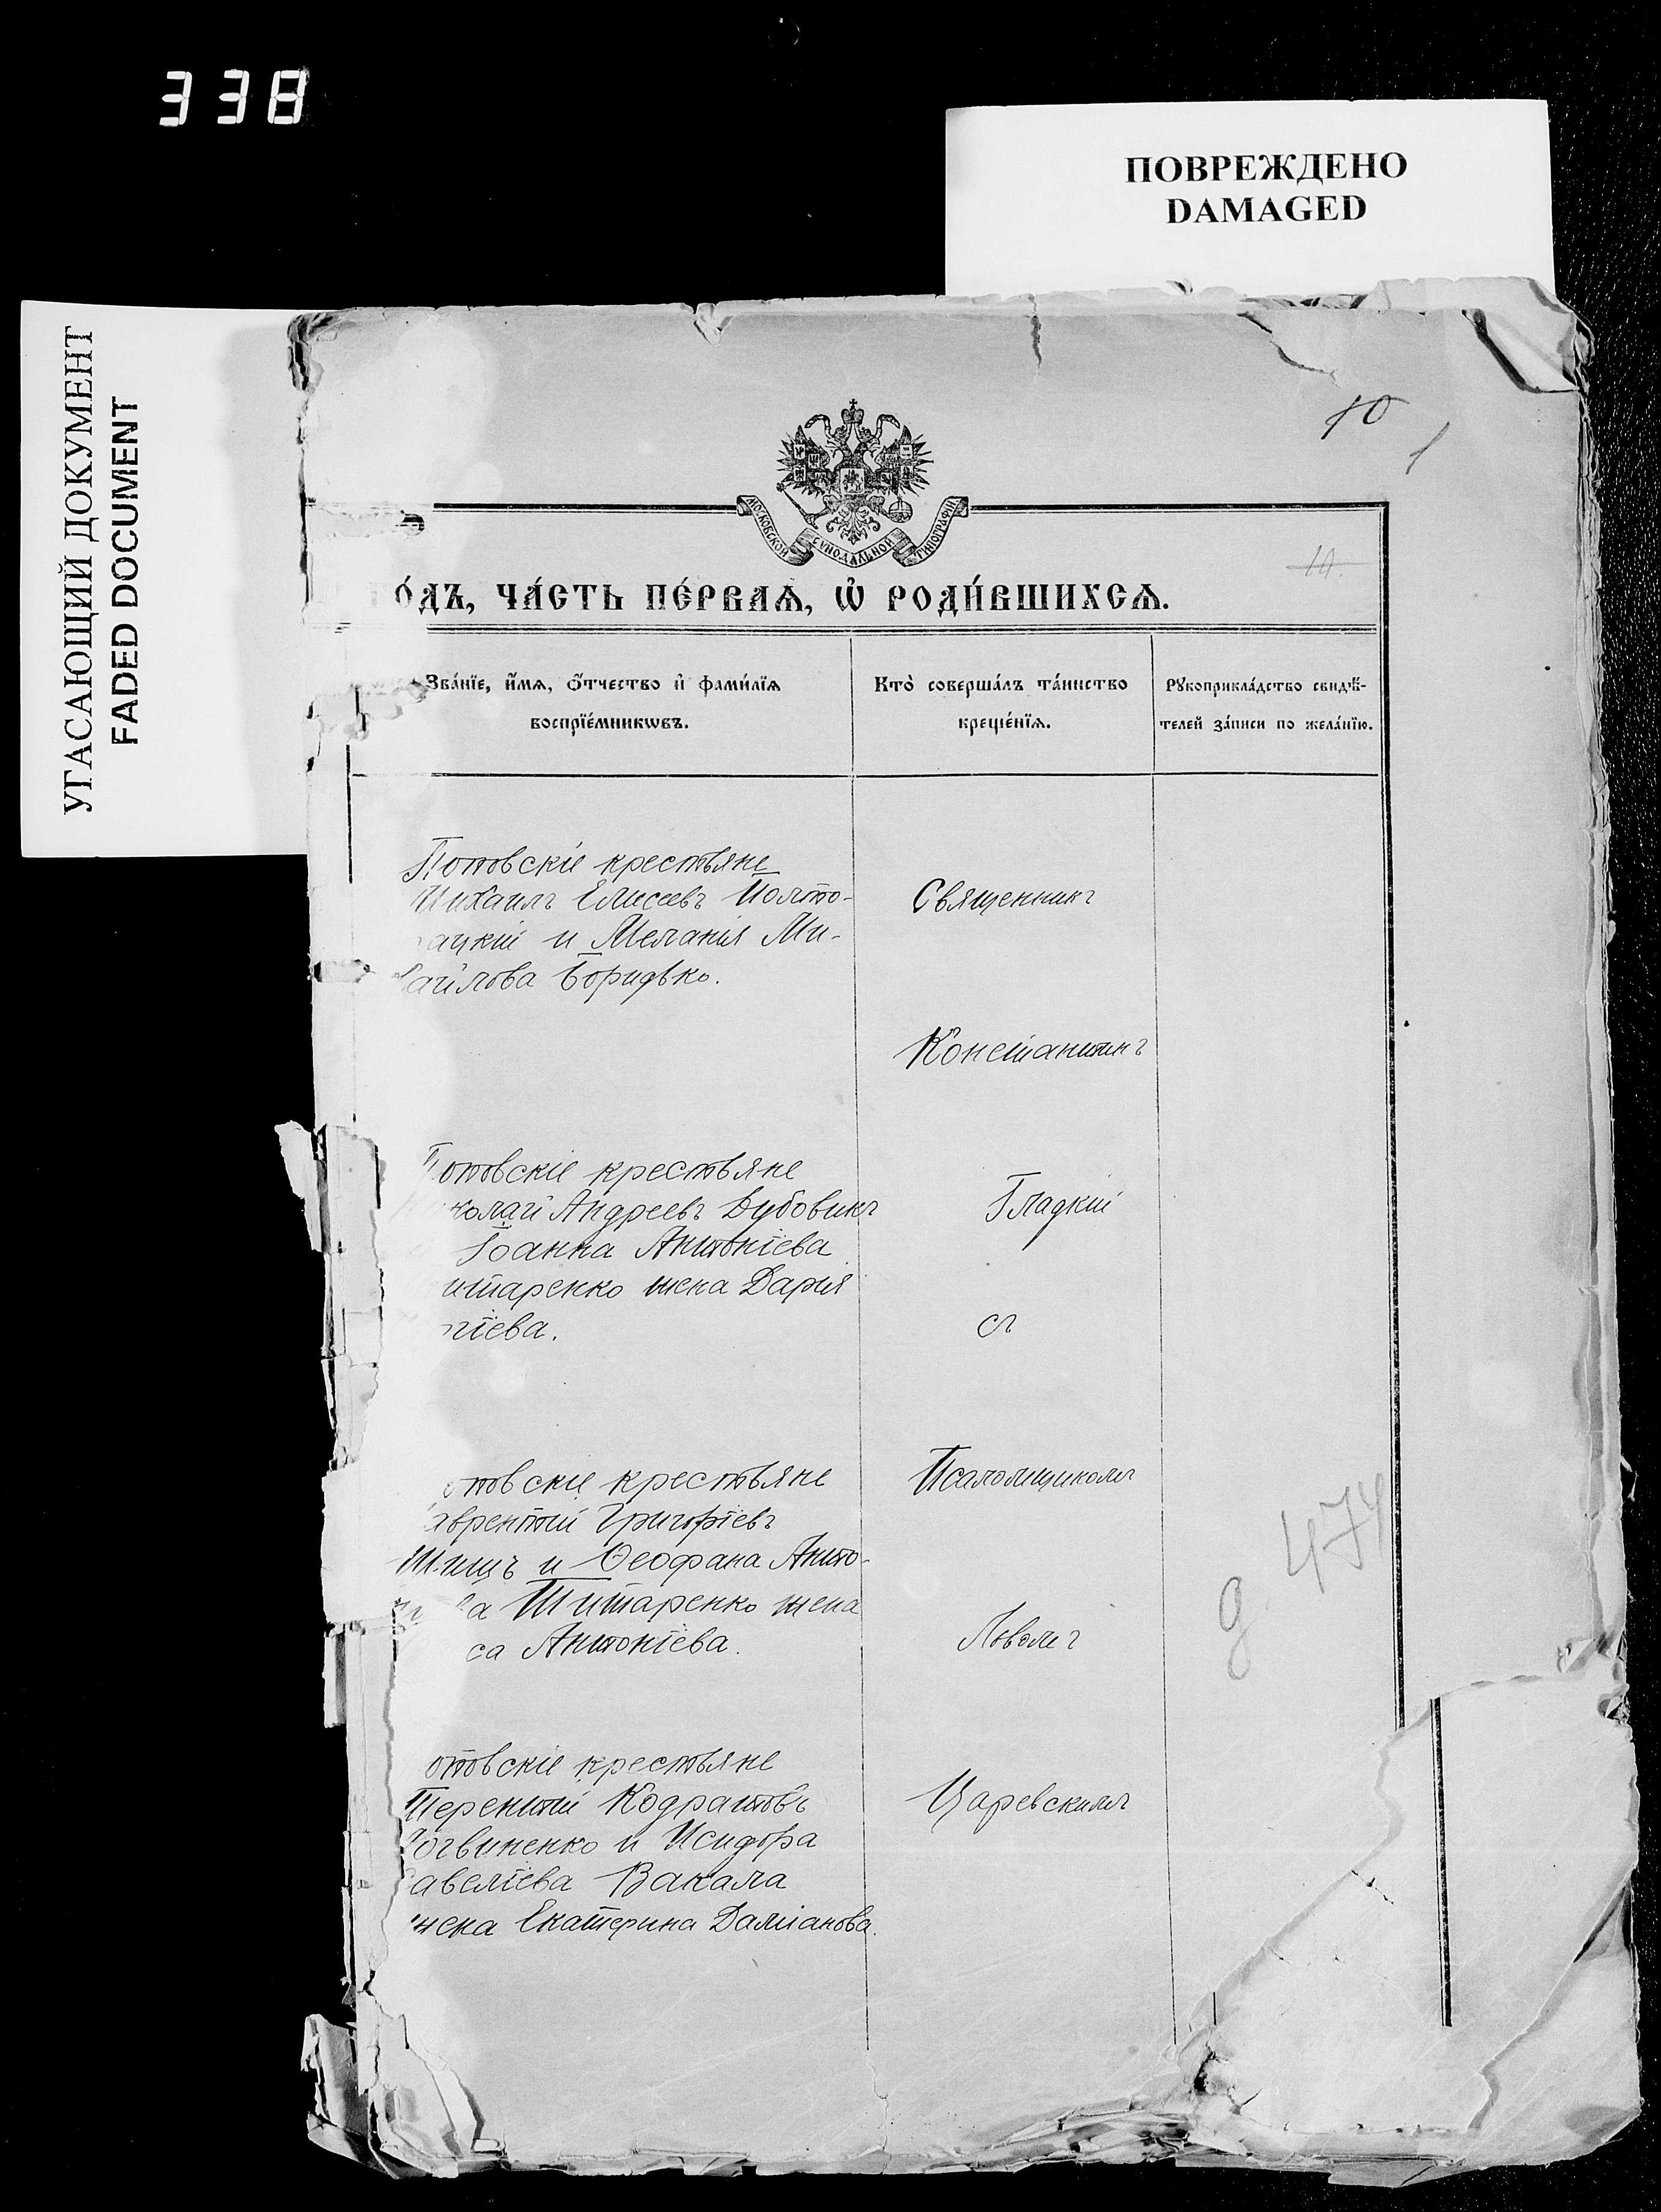 338
ПОВРЕЖДЕНО
DAMAGED
УГАСАЮЩИЙ ДОКУМЕНТ
FADED DOCUMENT
10
1
МОСКОВСКОЙ СѴНОДАЛЬНОЙ ТИПОГРАФІИ
10.
о́дъ, ча́сть пе́рваѧ, ѿ роди́вшихсѧ.
Зва́нїе, и҆́мѧ, ѻ҆́тчество и҆ фами́лїѧ
воспрїе́мникѡвъ.
Кто̀ соверша́лъ та́инство
креще́нїѧ.
Рꙋкоприкла́дство свидѣ́-
телей за́писи по жела́нїю.
Потовскіе крестьяне
Михаилъ Елисеевъ Полто-
ацкій и Меланія Ми-
хайлова Боридько.
Священникъ
Константинъ
отовскіе крестьяне
колай Андреевъ Дубовикъ
Іоанна Антоніева
итаренко жена Дарія
ніева.
Гладкій
съ
отовскіе крестьяне
аврентій Григоріевъ
и Ѳеофана Анто-
ва Титаренко жена
са Антоніева.
Псаломщикомъ
Львомъ
д 474
отовскіе крестьяне
Терентій Кодратовъ
огвиненко и Исидора
авеліева Вакала
жена Екатерина Даміанова.
Царевскимъ